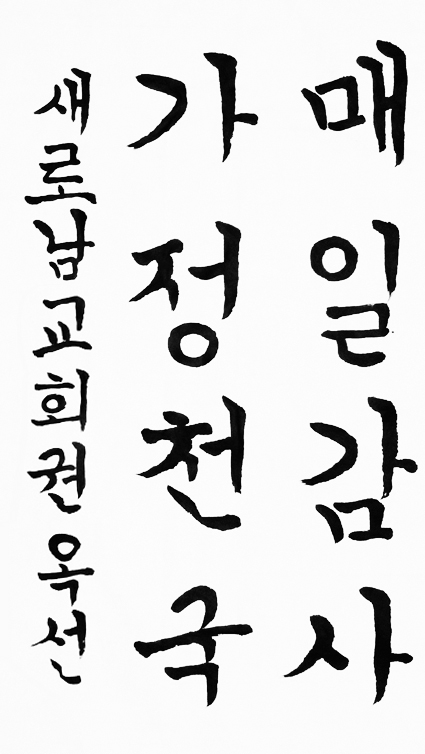 매일감사
가정천국
새로남교회권옥선